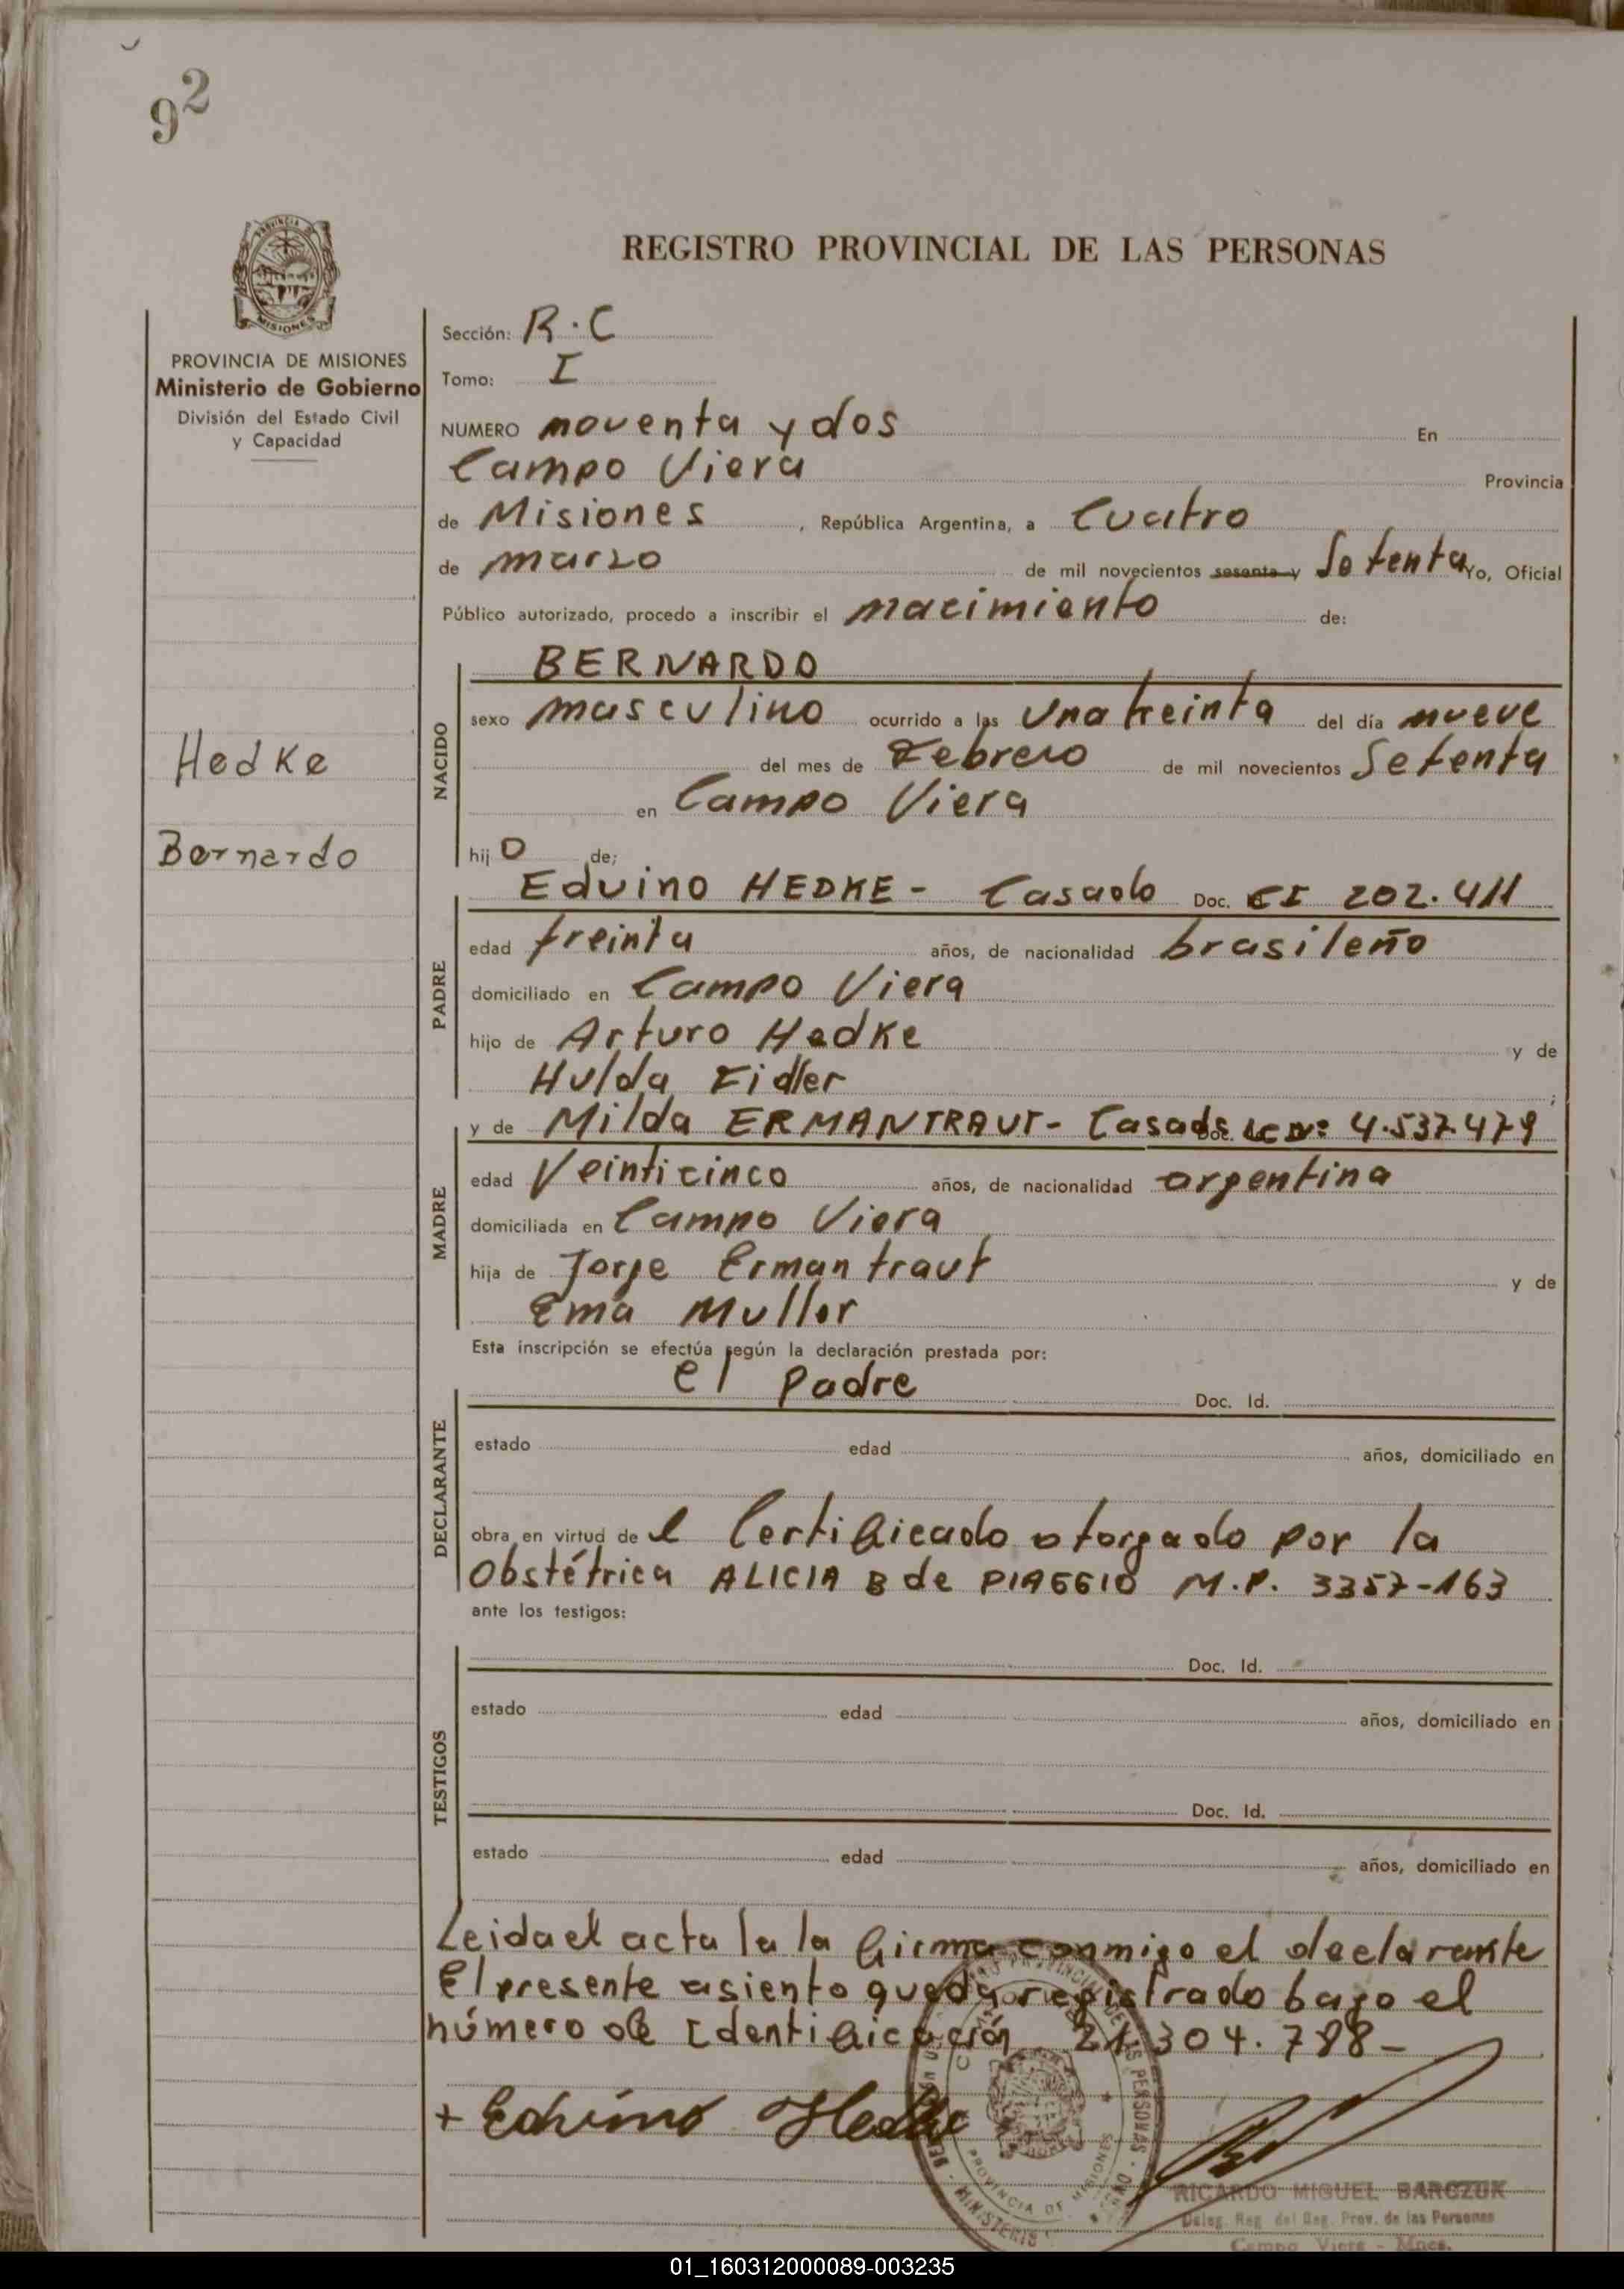 92
PROVINCIA DE MISIONES
Ministerio de Gobierno
División del Estado Civil
y Capacidad
Hedke
Bernardo
REGISTRO PROVINCIAL DE LAS PERSONAS
Sección: R.C
Tomo: I
NUMERO noventa y dos En
Campo Viera Provincia
de Misiones, República Argentina, a Cuatro
de marzo de mil novecientos sesenta y Setenta Yo, Oficial
Público autorizado, procedo a inscribir el nacimiento de:
NACIDO
BERNARDO
sexo masculino ocurrido a las Una treinta del día nueve
del mes de Febrero de mil novecientos Setenta
en Campo Viera
hijo de;
PADRE
Eduino HEDKE - Casado Doc. CI 202.411
edad treinta años, de nacionalidad brasileño
domiciliado en Campo Viera
hijo de Arturo Hedke y de
Hulda Fidler ;
MADRE
y de Milda ERMANTRAUT - Casada Doc. LC Nº 4.537.479
edad Veinticinco años, de nacionalidad argentina
domiciliada en Campo Viera
hija de Jorge Ermantraut y de
Ema Muller
Esta inscripción se efectúa según la declaración prestada por:
DECLARANTE
el Padre Doc. Id.
estado edad años, domiciliado en
obra en virtud de l Certificado otorgado por la
Obstétrica ALICIA B de PIAGGIO M.P. 3357-163
ante los testigos:
TESTIGOS
Doc. Id.
estado edad años, domiciliado en
Doc. Id.
estado edad años, domiciliado en
Leida el acta la la firma conmigo el declarante
El presente asiento queda registrado bajo el
número de Identificación 21.304.788-
+ Eduino Hedke
PROVINCIA DE MISIONES
RICARDO MIGUEL BARCZUK
Deleg. Reg. del Reg. Prov. de las Personas
Campo Viera - Mnes.
01_160312000089-003235